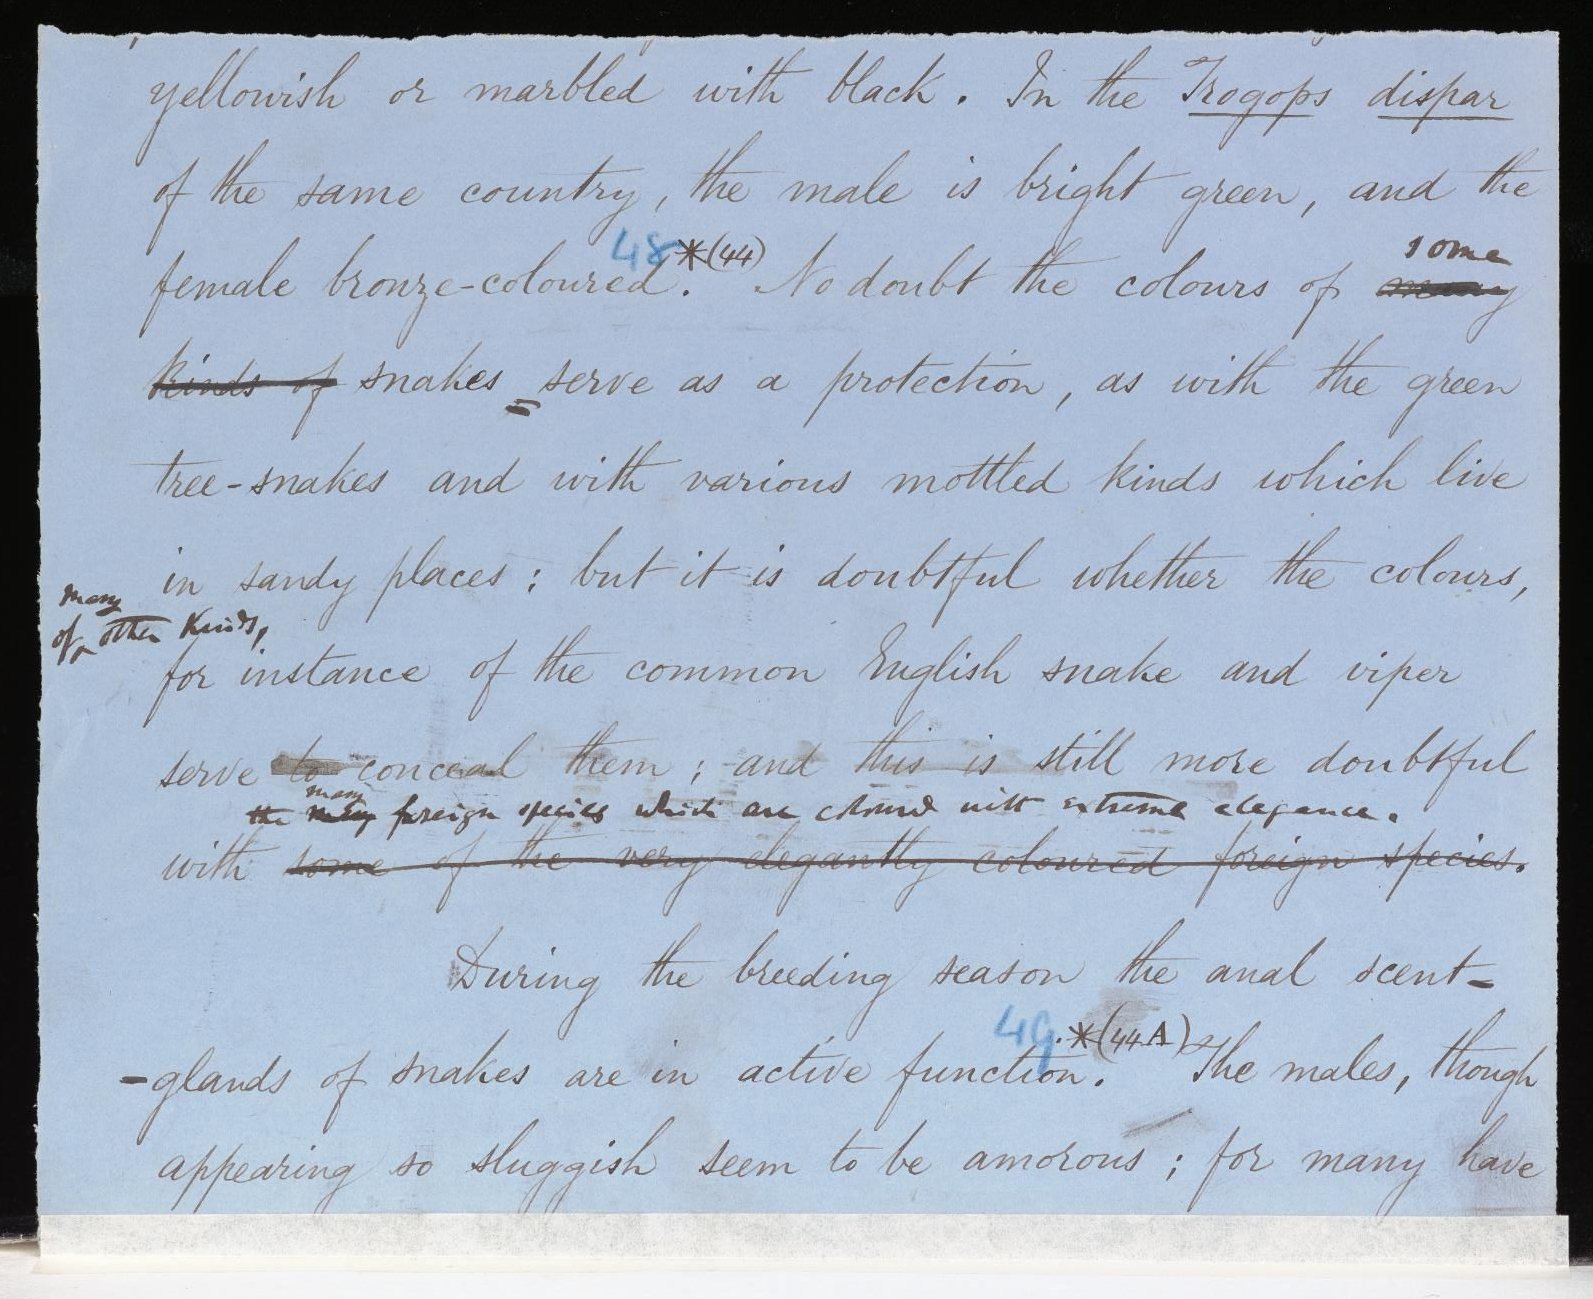 yellowish or marbled with black. In the Trogops dispar
of the same country, the male is bright green, and the
48 *(44) some
female bronze-coloured. No doubt the colours of many
kinds of snakes serve as a protection, as with the green
tree-snakes and with various mottled kinds which live
in sandy places; but it is doubtful whether the colours,
many
of other kinds,
for instance of the common English snake and viper
serve to conceal them; and this is still more doubtful
many
the many foreign species which are coloured with extreme elegance.
with some of the very elegantly coloured foreign species.
During the breeding season the anal scent-
49 *(44A)
-glands of snakes are in active function. The males, though
appearing so sluggish seem to be amorous; for many have